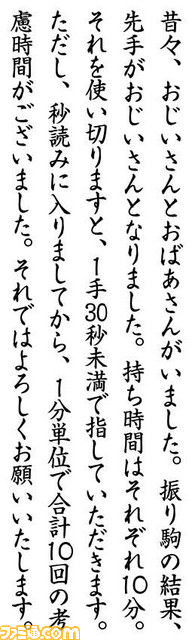 昔々、おじいさんとおばあさんがいました。振り駒の結果、
先手がおじいさんとなりました。持ち時間はそれぞれ10分。
それを使い切りますと、1手30秒未満で指していただきます。
ただし、秒読みに入りましてから、1分単位で合計10回の考
慮時間がございました。それではよろしくお願いいたします。
ファミ通.com